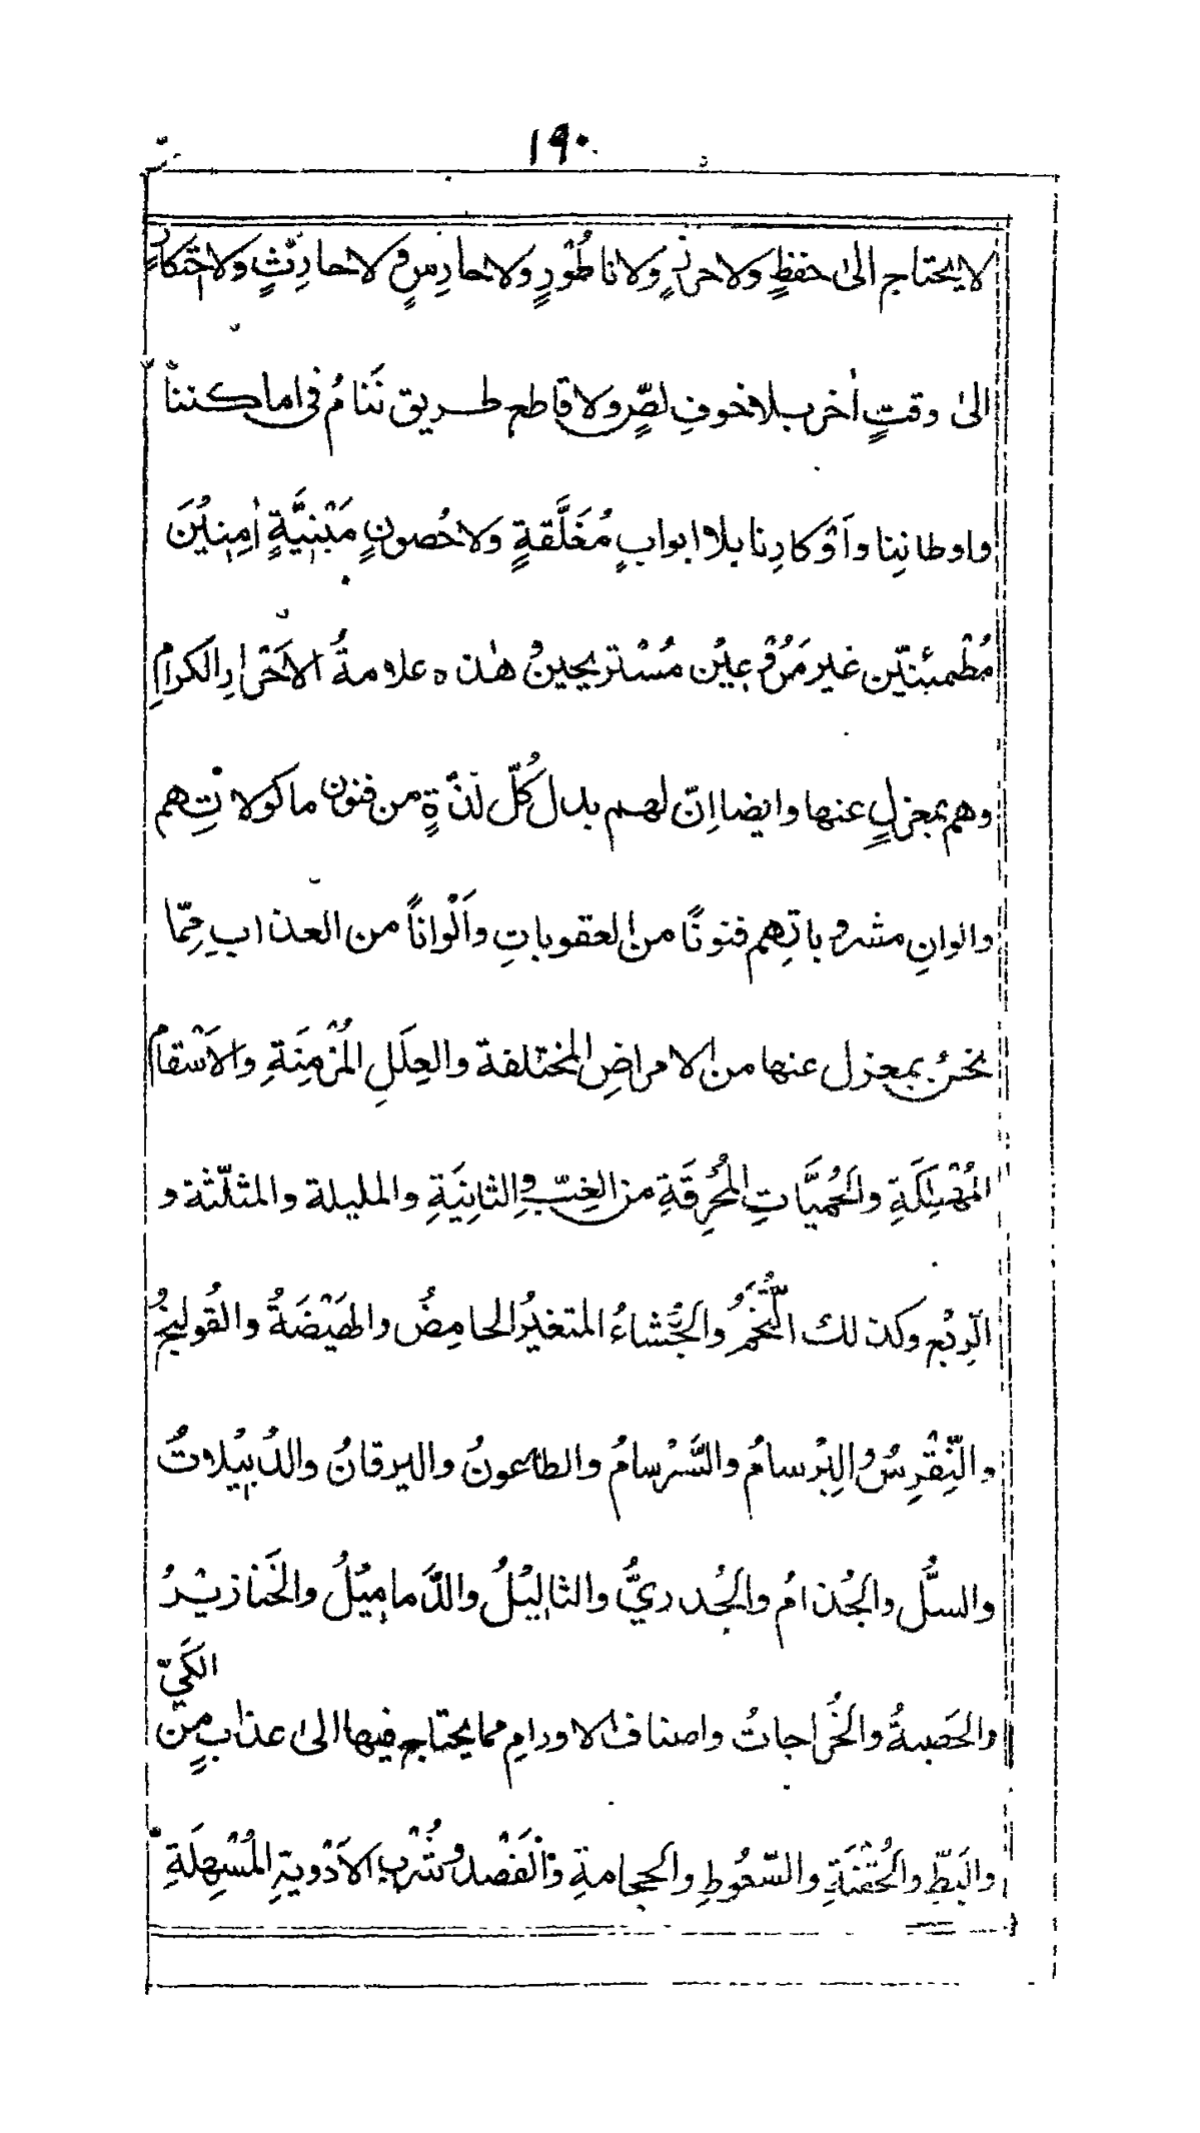 ١٩٠
لا يحتاج الىٰ حفظٍ ولا حرزٍ ولا ناطُوْرٍ ولا حارِسٍ ولا حارِثٍ ولا احْتكارٍ
الىٰ وقتٍ اٰخر بلا خوفِ لصٍّ ولا قاطع طريق نَنامُ فى اماكننا
واوطانِنا واَوْكارِنا بلا ابوابٍ مُغَلَّقةٍ وَلا حُصونٍ مَبْنِيَّةٍ اٰمِنِيْنَ
مُطْمئِنّين غير مَرْوُعِيْن مُسْتريحِينْ هٰذه علامةُ الاَحْرارِ الكرامِ
وهم بمعزلٍ عنها وايضا اِنّ لهم بدل كُلّ لذّةٍ من فنون ماكولاتِهم
والوانِ مشروباتِهم فنونًا من العقوباتِ واَلْواناً من العذابِ مِمّا
نحنُ بمعزل عنها من الامراضِ المختلفة والعِلَلِ المُزْمِنَةِ والاَسْقامِ
المُهْلِكَةِ والحُمَيَّاتِ المُحْرِقَةِ من الغِبّ والثانِيَةِ والمليلة والمثلّثة و
الرِّبْع وكذلك التُّخَمُ والجُشاءُ المتغيرُ الحامِضُ والهَيْضَةُ والقُولنجُ
والنِّقْرِسُ والبِرْسامُ والسَّرْسامُ والطاعونُ واليرقانُ والدُبيْلاتُ
والسلُّ والجُذامُ والجُدريُّ والثاليْلُ والدَّماميْلُ والخَنازيْرُ
والحَصبةُ والخُراجاتُ واصناف الاورامِ مما يحتاج فيها الىٰ عذابٍ مِن
الكَيّ
والبَطِّ والحُقْنَةِ والسّعُوطِ والحجامةِ والْفَصْد وشُرْبِ الاَدْويةِ المُسْهِلَةِ